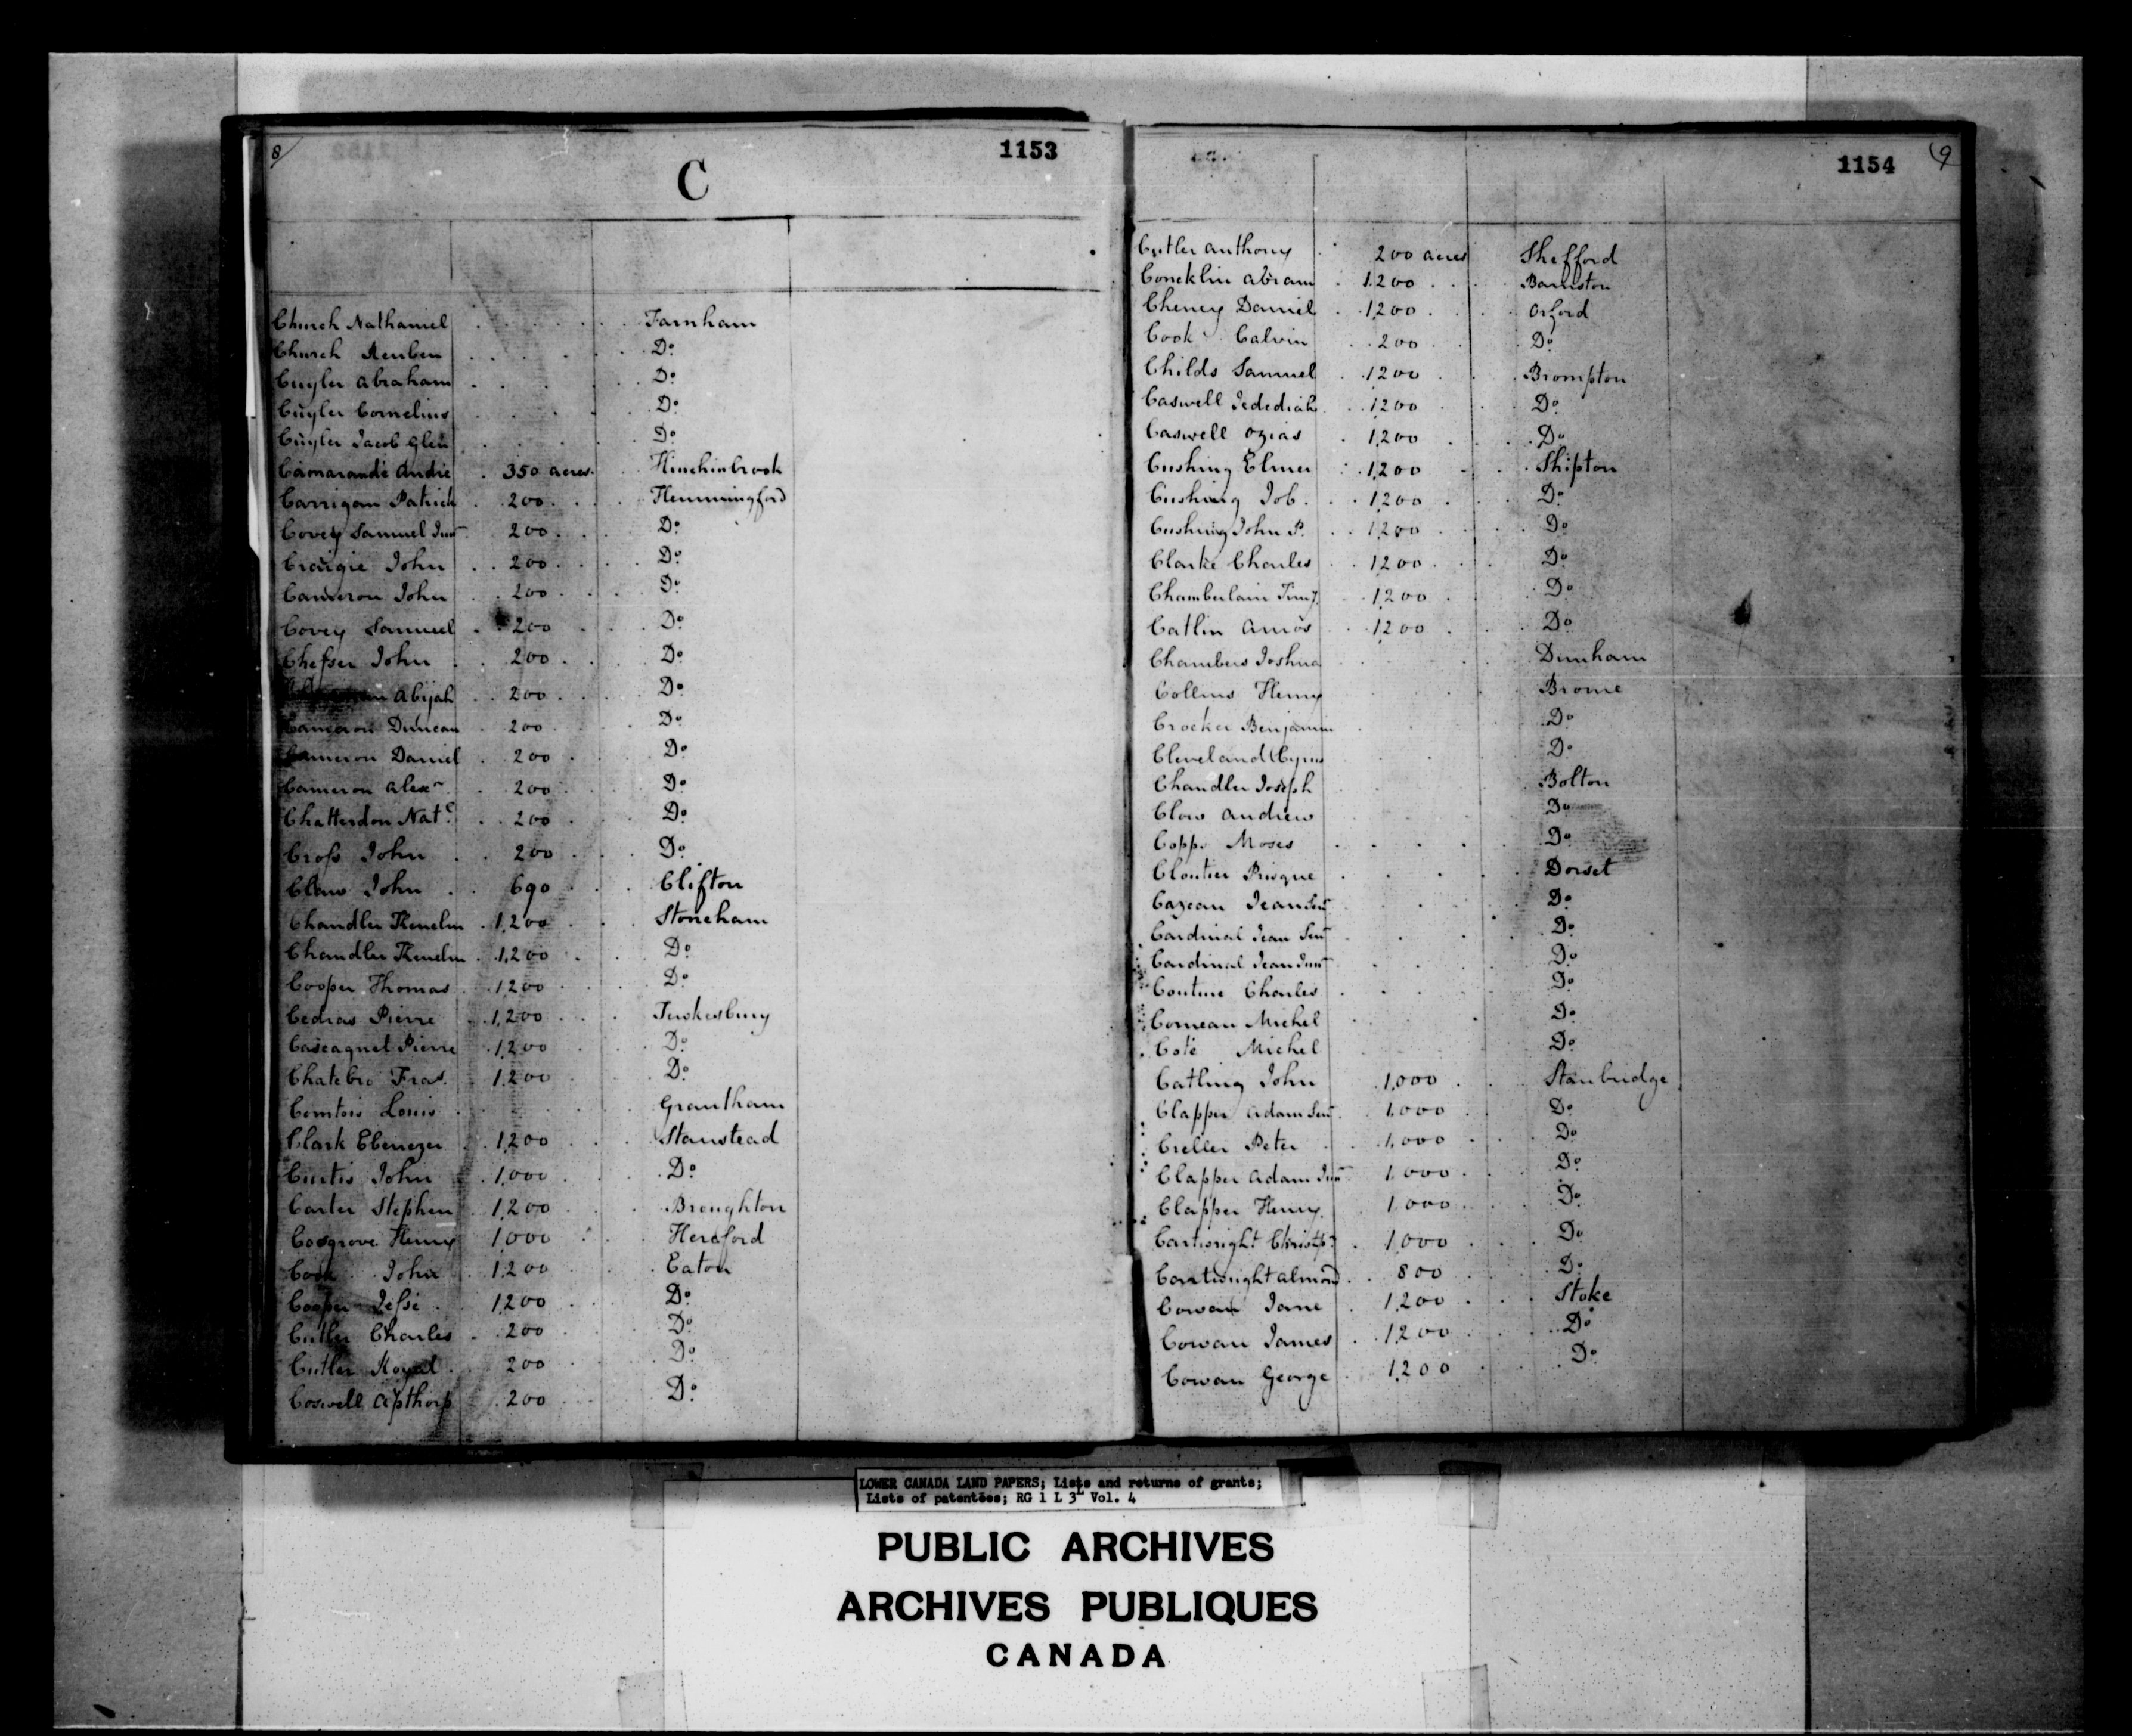 8
C
1153
Church Nathaniel . . . . . . Farnham
Church Reuben . . . . . . Do
Cuyler Abraham . . . . . Do
Cuyler Cornelius . . . . Do
Cuyler Jacob Glen . . . . Do
Camarandé André . 350 acres . . Hinchinbrook
Carrigan Patrick . 200 . . . Hemmingford
Covey Samuel Junr . 200 . . . Do
Craigie John . . 200 . . . Do
Cameron John . . 200 . . . Do
Covey Samuel . . 200 . . . Do
Chesser John . . 200 . . . Do
Abijah . . 200 . . . Do
Cameron Duncan . 200 . . Do
Cameron Daniel . 200 . . Do
Cameron Alexr . . 200 . . Do
Chatterdon Natl . . 200 . . Do
Cross John . . 200 . . . Do
Claus John . . 690 . . . Clifton
Chandler Kenelm . 1,200 . . . Stoneham
Chandler Kenelm . 1,200 . . Do
Cooper Thomas . 1,200 . . Do
Cedras Pierre . 1,200 . . . Tewkesbury
Caseagnet Pierre . 1,200 . . Do
Chatebro Fras. . 1,200 . . Do
Comtois Louis . . . . Grantham
Clark Ebenezer . 1,200 . . . Stanstead
Curtis John 1,000 . . . Do
Carter Stephen 1,200 . . Broughton
Cosgrove Henry 1,000 . . Hereford
Cook John 1,200 . . Eaton
Cooper Jesse . 1,200 . . Do
Cutler Charles . 200 . . Do
Cutler Royal . 200 . . Do
Coswell Apthorp . 200 . . Do
1154
9
Cutler Anthony . 200 acres Shefford
Concklin Abram . 1,200 . . . Barnston
Cheney Daniel . 1,200 . . . Orford
Cook Calvin . . 200 . . Do
Childs Samuel . 1,200 . . . Brompton
Caswell Jedediah . . 1,200 . . . Do
Caswell Ozias . 1,200 . . . Do
Cushing Elmer . . 1,200 . . . Shipton
Cushing Job . . . 1,200 . . . Do
Cushing John P. . . 1,200 . . . Do
Clarke Charles . . 1,200 . . . Do
Chamberlain Timy. . 1,200 . . . Do
Catlin Amos . . 1,200 . . . Do
Chambers Joshua . . . Dunham
Collins Henry . . . Brome
Crocker Benjamin . . . Do
Cleveland Cyrus . . . Do
Chandler Joseph . . . Bolton
Clow Andrew . . . Do
Copp Moses . . . . . Do
Cloutier Prisque . . . . . Dorset
Cazeau Jean Senr . . . . Do
Cardinal Jean Senr . . . . Do
Cardinal Jean Junr . . . . Do
Couture Charles . . . . Do
Comeau Michel . . . Do
Coté Michel . . . Do
Catling John . 1,000 . . . Stanbridge
Clapper Adam Senr . 1,000 . . Do
Creller Peter . 1,000 . . . Do
Clapper Adam Junr 1,000 . . . Do
Clapper Henry . 1,000 . . . Do
Cartwright Christr . 1,000 . . . Do
Cartwright Almond . . 800 . . . Do
Cowan Jane . 1,200 . . . Stoke
Cowan James . . 1,200 . . . Do
Cowan George . 1,200 . . . Do
LOWER CANADA LAND PAPERS; Lists and returns of grants;
Lists of patentees; RG 1 L 3L Vol. 4
PUBLIC ARCHIVES
ARCHIVES PUBLIQUES
CANADA